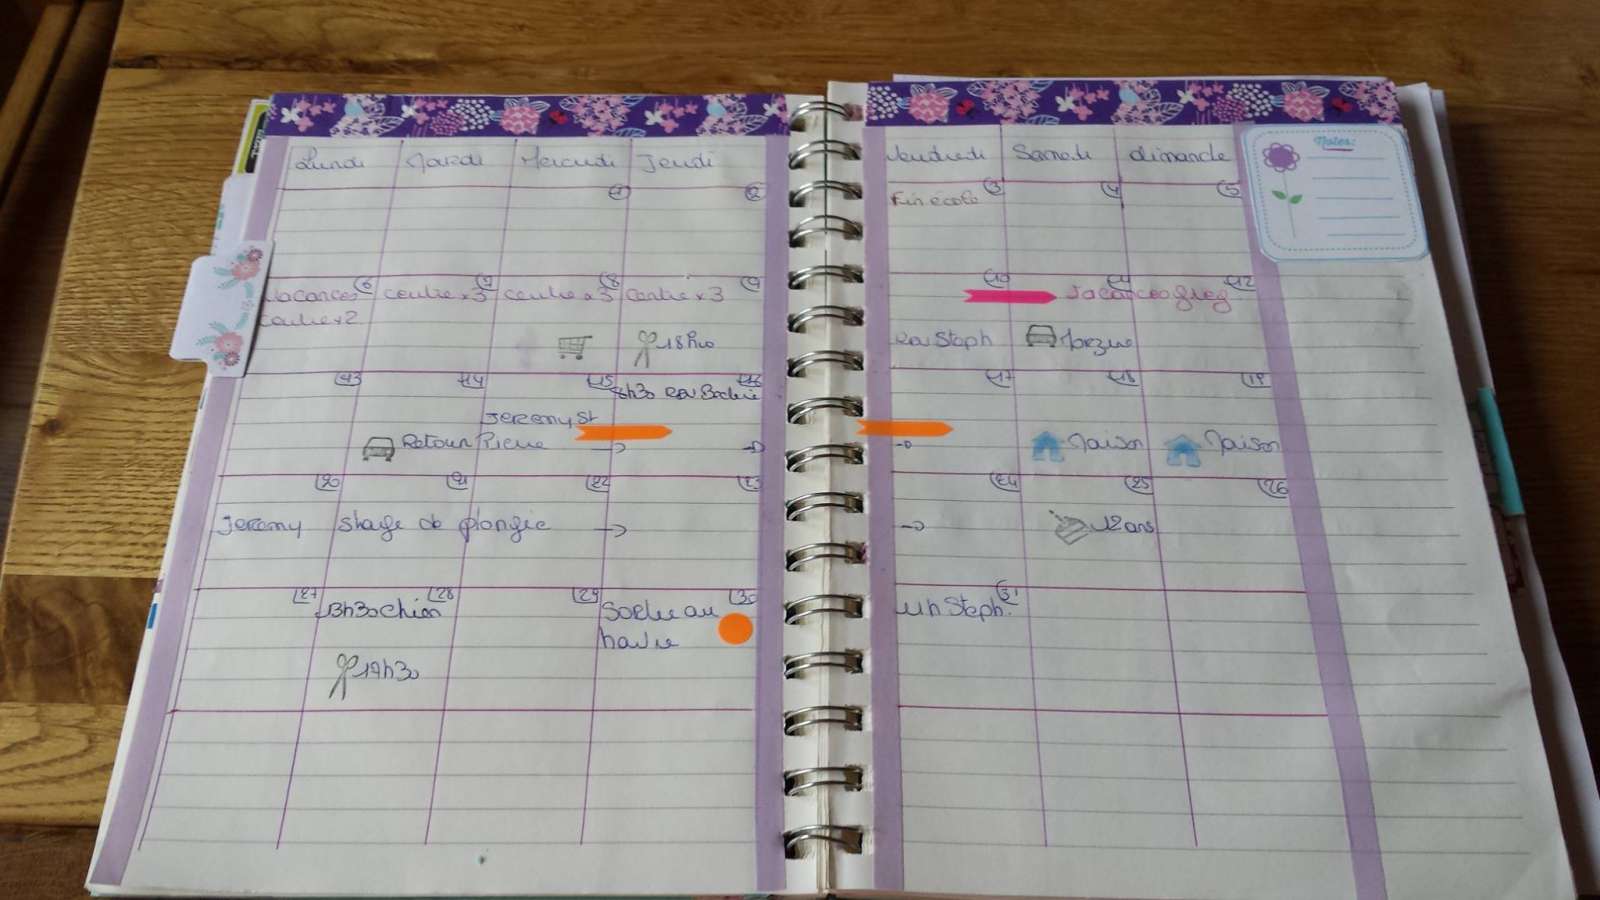 Lundi Mardi Mercredi Jeudi Vendredi Samedi dimanche
Notes:
1 2 3 4 5
Fin école
6 7 8 9 10 11 12
Vacances centre x 3 centre x 3 centre x 3 Vacances greg
centre x 2
18h00 RDV Steph Morzine
13 14 15 16 17 18 19
8h30 RDV
Jeremy St
Retour Pierre → → → Maison Maison
20 21 22 23 24 25 26
Jeremy stage de plongée → → 12 ans
27 28 29 30 31
13h30 chien Sortie au Steph.
havre
17h30